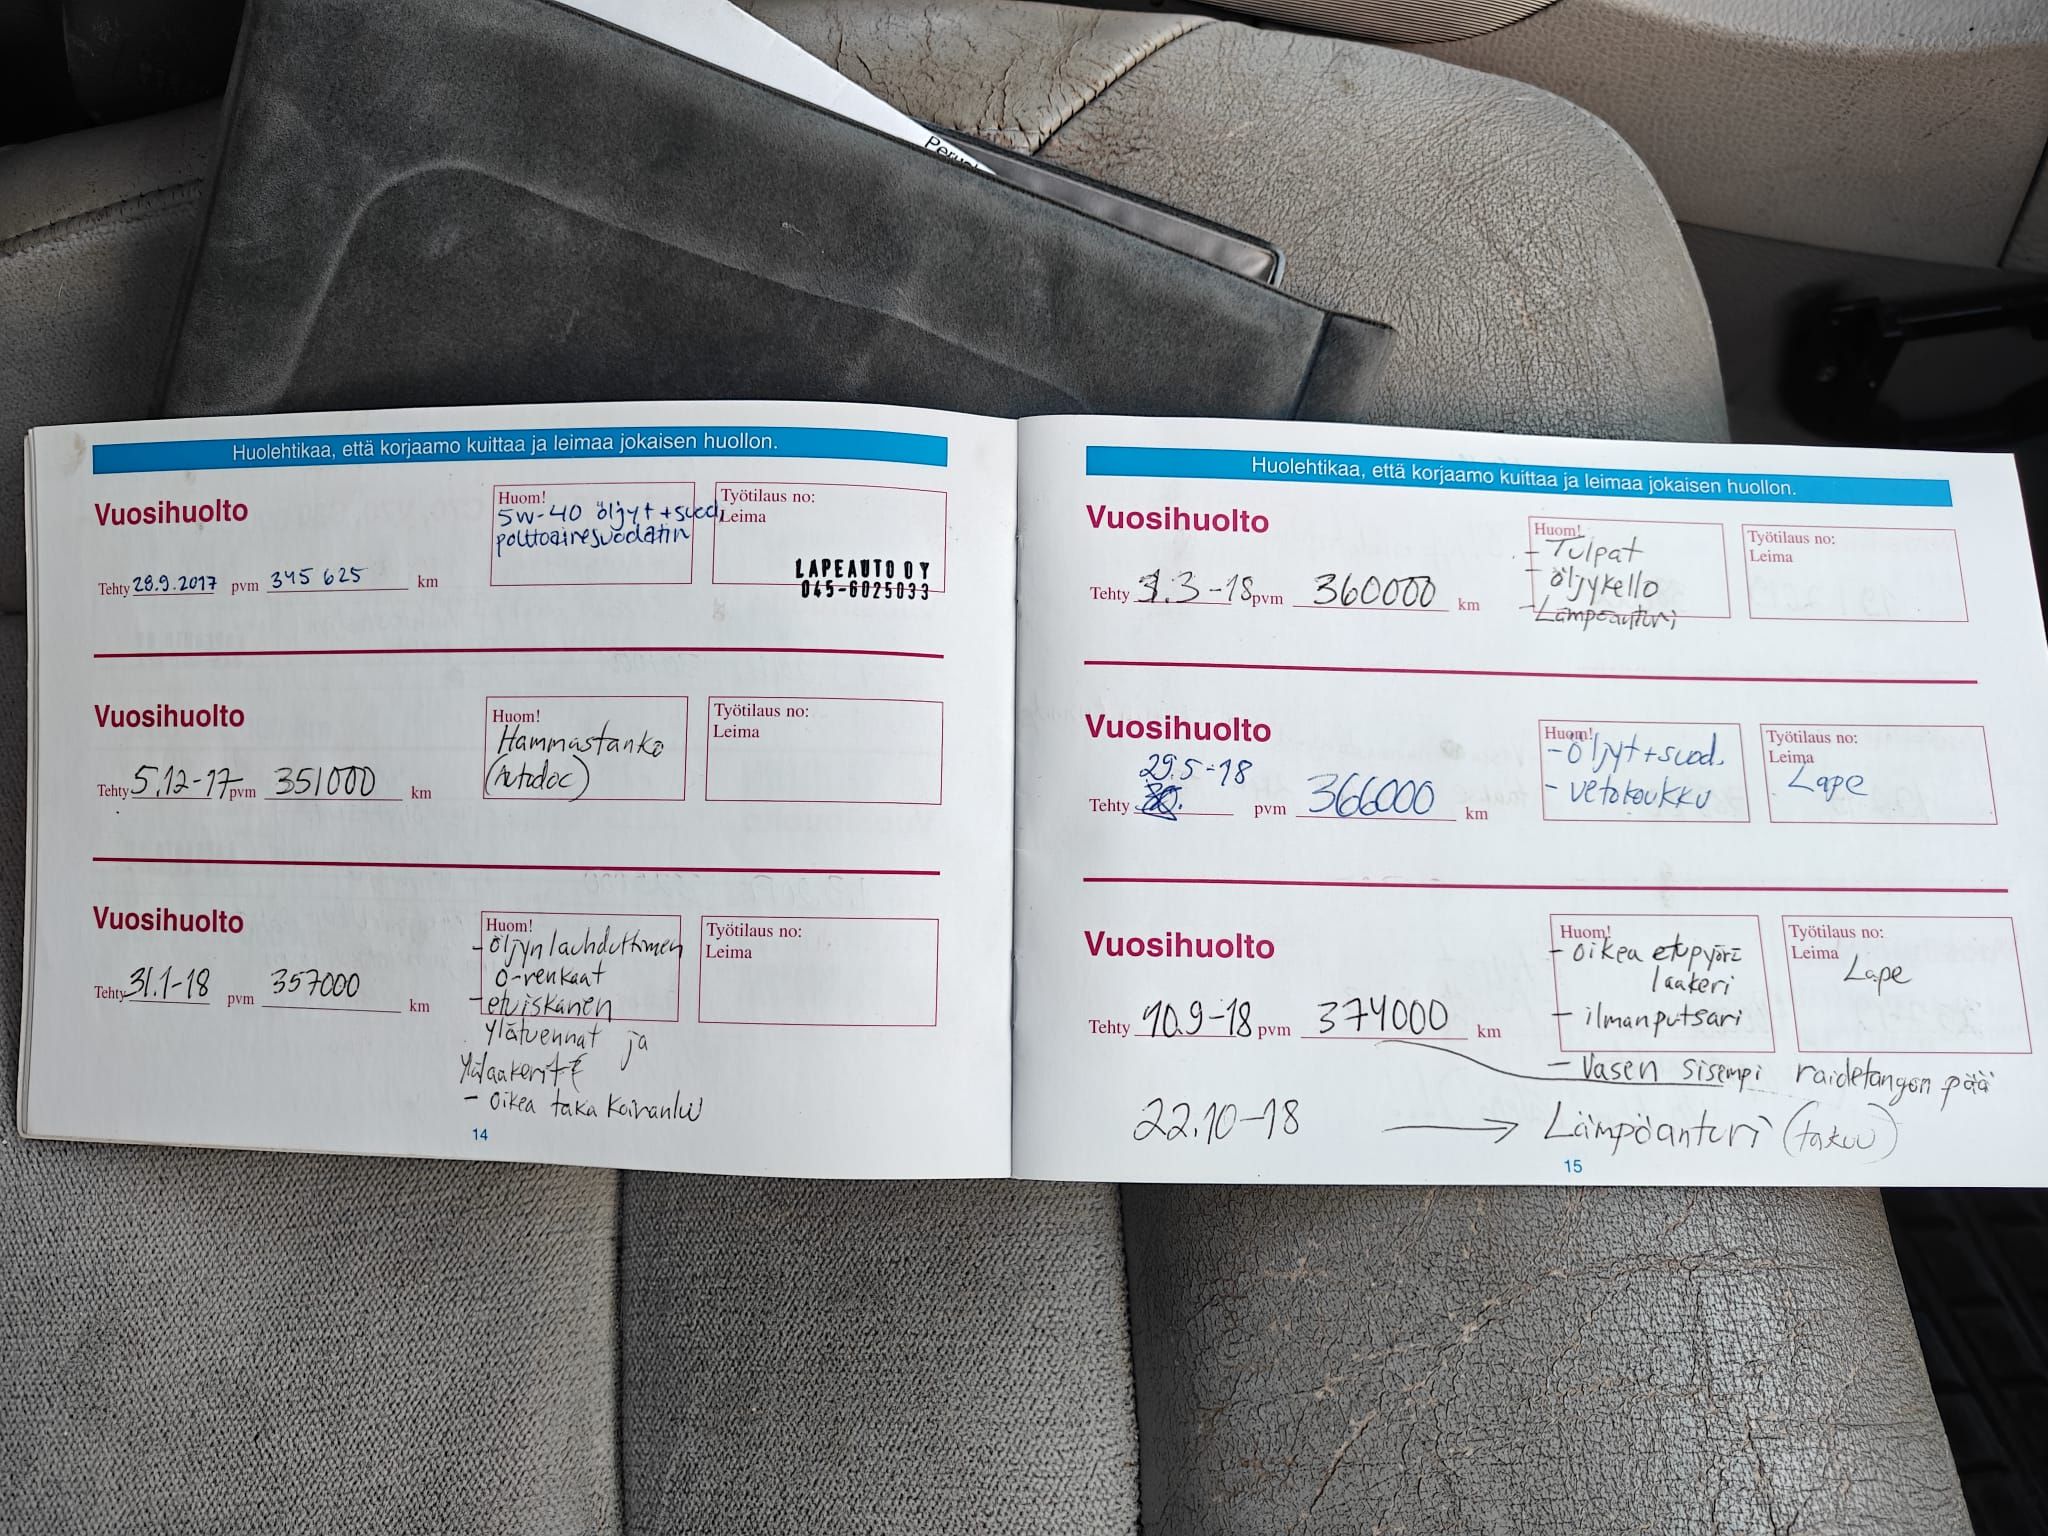 Huolehtikaa, että korjaamo kuittaa ja leimaa jokaisen huollon.
Vuosihuolto
Huom!
5W-40 öljyt + suod,
polttoainesuodatin
Työtilaus no:
Leima
LAPEAUTO OY
045-6025033
Tehty 28.9.2017 pvm 345 625 km
Vuosihuolto
Huom!
Hammastanko
(Autodoc)
Työtilaus no:
Leima
Tehty 5.12-17 pvm 351000 km
Vuosihuolto
Huom!
- öljynlauhduttimen
o-renkaat
- etuiskanen
ylätuennat ja
ylälaakerit
- oikea taka koiranluu
Työtilaus no:
Leima
Tehty 31.1-18 pvm 357000 km
14
Huolehtikaa, että korjaamo kuittaa ja leimaa jokaisen huollon.
Vuosihuolto
Huom!
- Tulpat
- öljykello
- Lämpöanturi
Työtilaus no:
Leima
Tehty 3.3-18 pvm 360000 km
Vuosihuolto
Huom!
- öljyt + suod.
- vetokoukku
Työtilaus no:
Leima
Lape
29.5-18
Tehty pvm 366000 km
Vuosihuolto
Huom!
- oikea etupyörä
laakeri
- ilmanputsari
- Vasen sisempi raidetangon pää
Työtilaus no:
Leima
Lape
Tehty 10.9-18 pvm 374000 km
22.10-18 → Lämpöanturi (takuu)
15